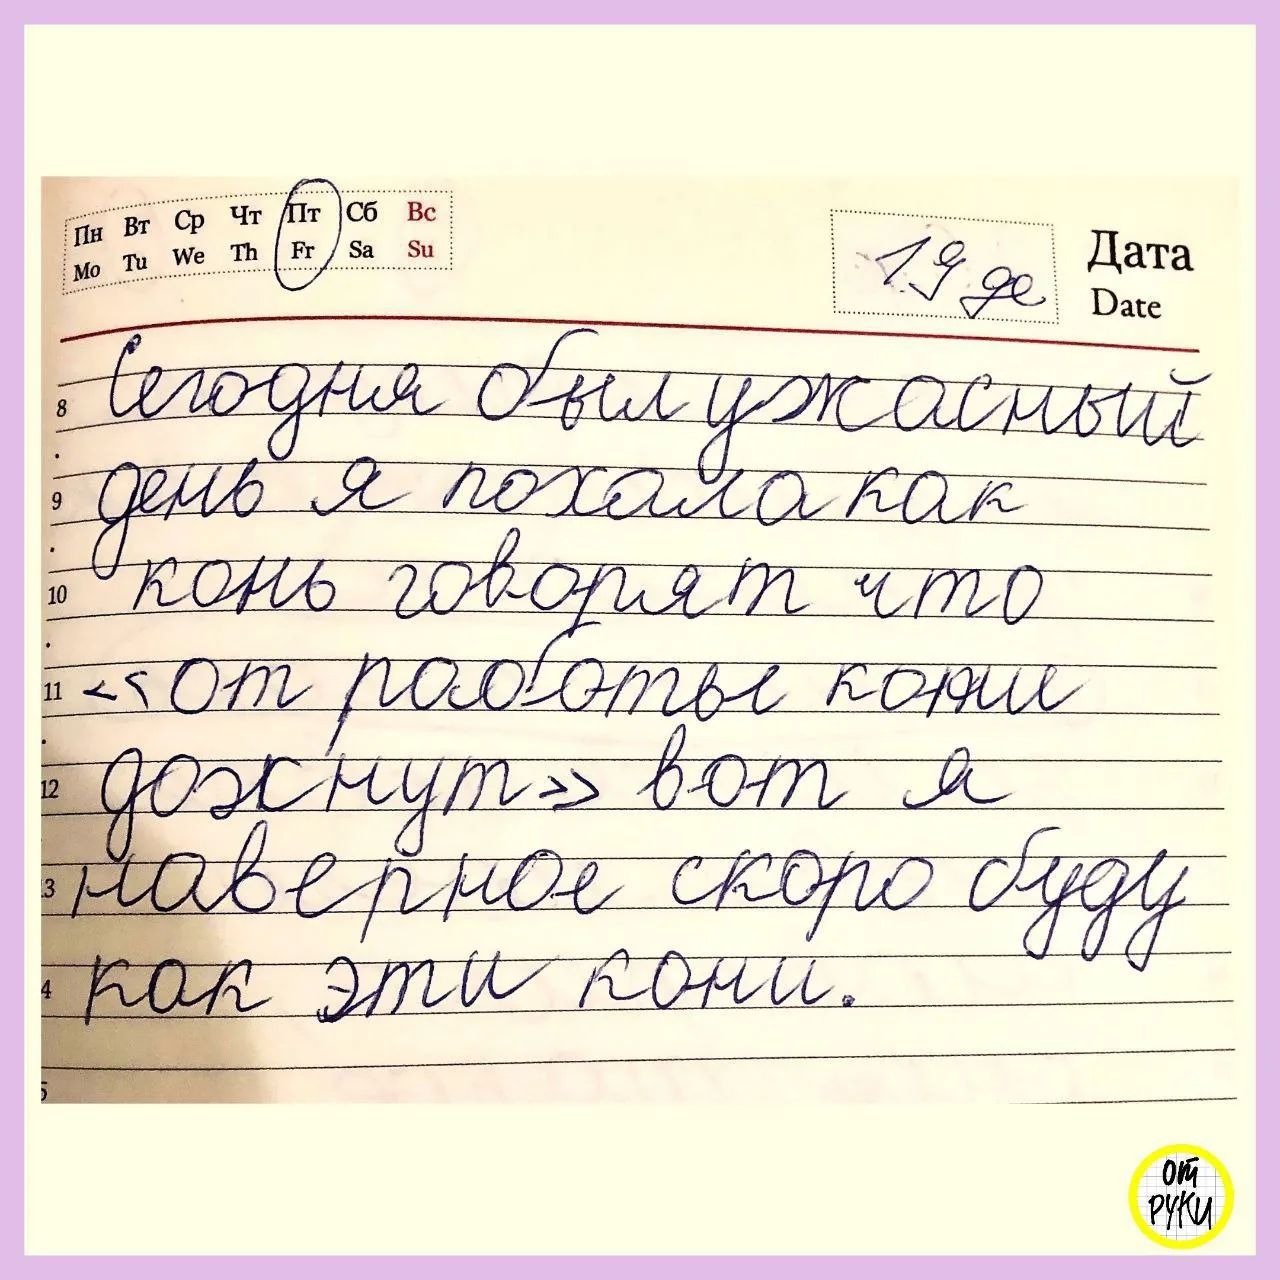 Пн Вт Ср Чт Пт Сб Вс
Mo Tu We Th Fr Sa Su
19 де
Дата
Date
8 Сегодня был ужасный
9 день я похала как
10 конь говорят что
11 <<от работы кони
12 дожнут>> вот я
3 наверное скоро буду
4 как эти кони.
5
ОТ
РУКИ